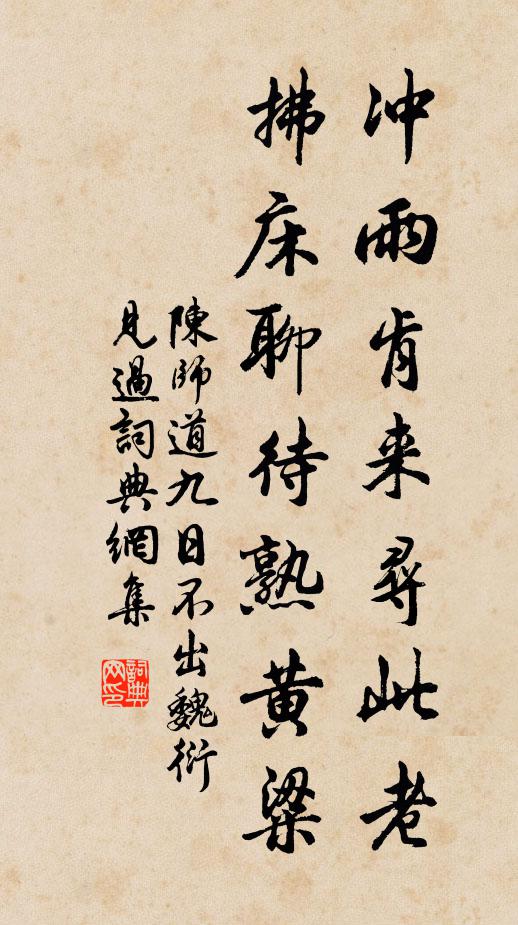 冲雨肯来尋此老
拂床聊待熟黄粱
陳師道九日不出魏衍
見過詞典網集
詞典网印